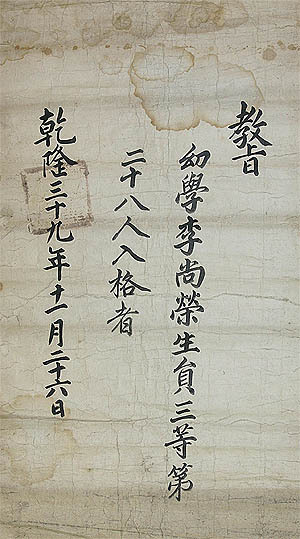 教旨
幼學李尚榮生員三等第
二十八人入格者
乾隆三十九年十一月二十六日